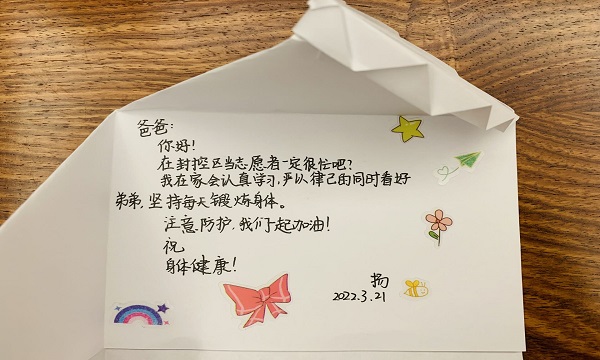 爸爸:
你好!
在封控区当志愿者一定很忙吧?
我在家会认真学习,严以律己的同时看好
弟弟,坚持每天锻炼身体。
注意防护,我们一起加油!
祝
身体健康!
扬
2022.3.21